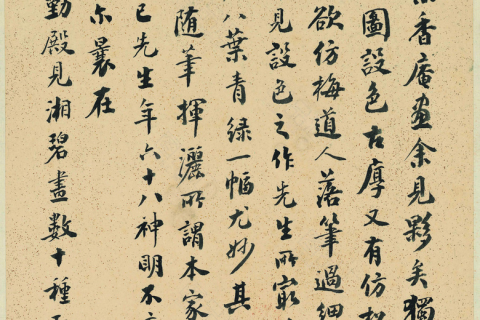 香庵畫余見夥矣獨
圖設色古厚又有仿
欲仿梅道人落筆過細
見設色之作先生所最
八葉青綠一幅尤妙其
随筆揮灑所謂本家
已先生年六十八神明不
尓曩在
勤殿見湘碧畫數十種